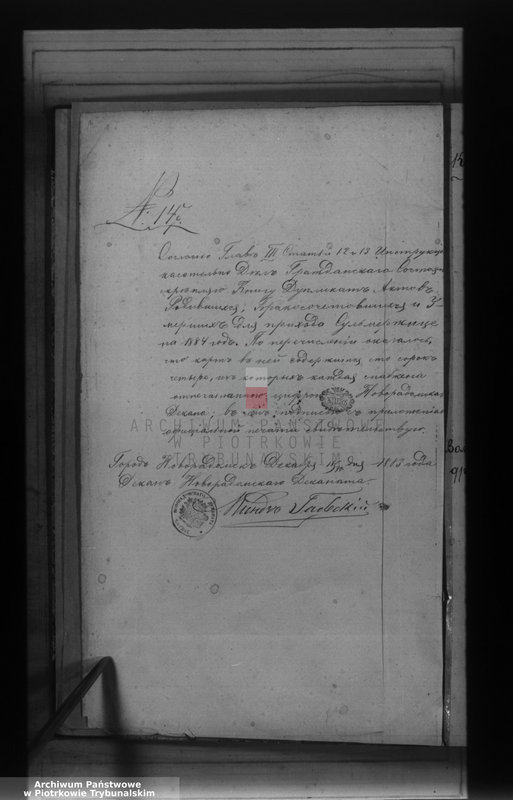 № 145.
Согласно Главы III Статей 12 и 13 Инструкціи
касательно Гражданскаго
скрѣпляю Книгу Дупликатъ Актовъ
Родившихся, Бракосочетавшихся и У-
мершихъ для прихода Сульмержице
на 1884 годъ. По перечисленіи оказалось,
что картъ въ ней содержится сто сорокъ
четыре, изъ которыхъ каждая снабжена
цифрою Новорадомскаго
Декана; въ чемъ подписью съ приложеніемъ
печати свидѣтельствую.
Городъ Новорадомскъ Декабря дня года
Деканъ Новорадомскаго Деканата
ARCHIWUM PAŃSTWOWE
W PIOTRKOWIE
TRYBUNALSKIM
Archiwum Państwowe
w Piotrkowie Trybunalskim